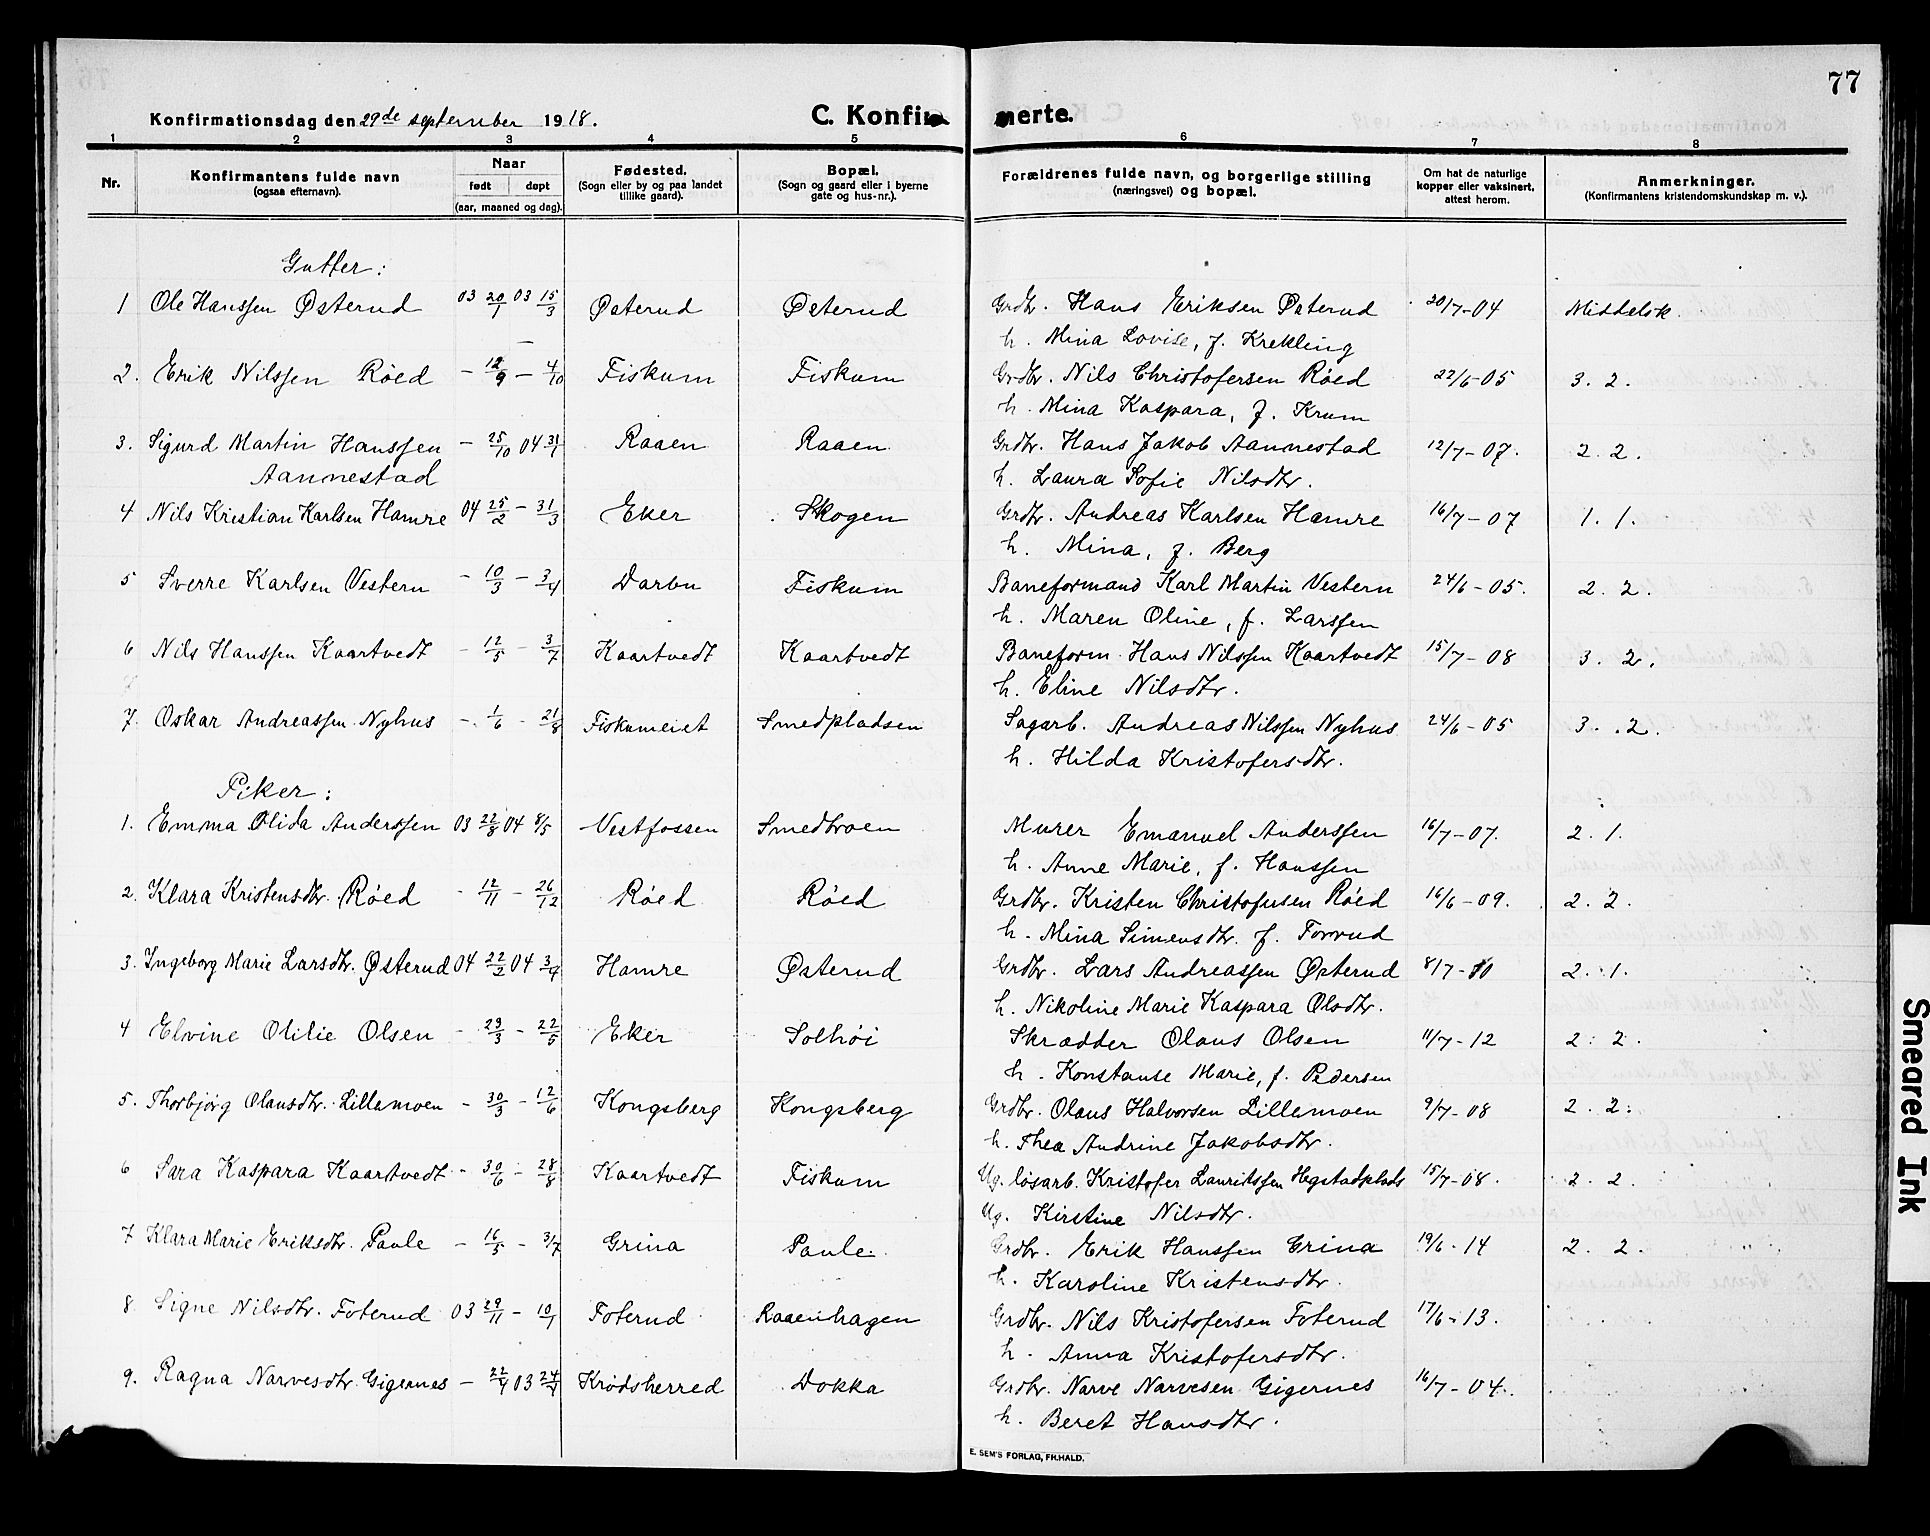 77
Konfirmationsdag den 29de september 1918.
C. Konfirmerte.
1 2 3 4 5 6 7 8
Nr. | Konfirmantens fulde navn (ogsaa efternavn). | Naar født | døpt (aar, maaned og dag). | Fødested. (Sogn eller by og paa landet tillike gaard). | Bopæl. (Sogn og gaard eller i byerne gate og hus-nr.). | Forældrenes fulde navn, og borgerlige stilling (næringsvei) og bopæl. | Om hat de naturlige kopper eller vaksinert, attest herom. | Anmerkninger. (Konfirmantens kristendomskundskap m. v.).
Gutter:
1 Ole Hanssen Østerud 03 20/1 03 15/3 Østerud Østerud Grdbr. Hans Eriksen Østerud 20/7-04 Middelsk.
h. Mina Lovise, f. Krekling
2. Erik Nilssen Røed - 12/9 - 4/10 Fiskum Fiskum Grdbr. Nils Christofersen Røed 22/6-05 3. 2.
h. Mina Kaspara, f. Krum
3. Sigurd Martin Hanssen - 25/10 04 31/1 Raaen Raaen Grdbr. Hans Jakob Aannestad 12/7-07. 2. 2.
Aannestad h. Laura Sofie Nilsdtr.
4 Nils Kristian Karlsen Hamre 04 25/2 - 31/3 Eker Skogen Grdbr. Andreas Karlsen Hamre 16/7-07 1. 1.
h. Mina, f. Berg
5 Sverre Karlsen Vestern - 10/3 - 3/4 Darbu Fiskum Baneformand Karl Martin Vestern 24/6-05. 2. 2.
h. Maren Oline, f. Larssen
6 Nils Hanssen Kaartvedt - 12/5 - 3/7 Kaartvedt Kaartvedt Baneform. Hans Nilssen Kaartvedt 15/7-08 3. 2.
h. Eline Nilsdtr.
7. Oskar Andreassen Nyhus - 1/6 - 21/8 Fiskumeiet Smedpladsen Sagarb. Andreas Nilssen Nyhus 24/6-05 3. 2.
h. Hilda Kristofersdtr.
Piker:
1. Emma Olida Anderssen 03 22/8 04 8/5 Vestfossen Smedbroen Murer Emanuel Anderssen 16/7-07. 2. 1.
h. Anne Marie, f. Hanssen
2. Klara Kristensdtr. Røed - 12/11 - 26/12 Røed Røed Grdbr. Kristen Christofersen Røed 16/6-09. 2. 2.
h. Mina Simensdtr. f. Forrud
3. Ingeborg Marie Larsdtr. Østerud 04 22/2 04 3/4 Hamre Østerud Grdbr. Lars Andreassen Østerud 8/7-10 2. 1.
h. Nikoline Marie Kaspara Olsdtr.
4 Elvine Otilie Olsen - 29/3 - 22/5 Eker Solhøi Skrædder Olaus Olsen 11/7-12 2. 2.
h. Konstanse Marie, f. Pedersen
5. Thorbjørg Olausdtr. Lillemoen - 30/3 - 12/6 Kongsberg Kongsberg Grdbr. Olaus Halvorsen Lillemoen 9/7-08 2. 2.
h. Thea Andrine Jakobsdtr.
6 Sara Kaspara Kaartvedt - 30/6 - 28/8 Kaartvedt Fiskum Ug. løsarb. Kristofer Lauritssen Hegstadplads 15/7-08. 2. 2.
Ug. Kirstine Nilsdtr.
7 Klara Marie Eriksdtr. Paule - 16/5 - 3/7 Grina Paule. Grdbr. Erik Hanssen Grina 19/6-14 2. 2.
h. Karoline Kristensdtr.
8 Signe Nilsdtr. Foterud 03 29/11 - 10/1 Foterud Raaenhagen Grdbr. Nils Kristofersen Foterud 17/6-13.
h. Anna Kristofersdtr.
9. Ragna Narvesdtr. Gigernes - 22/4 03 24/4 Krødsherred Dokka Grdbr. Narve Narvesen Gigernes 16/7-04.
h. Beret Hansdtr.
E. SEM'S FORLAG, FR.HALD.
Smeared Ink